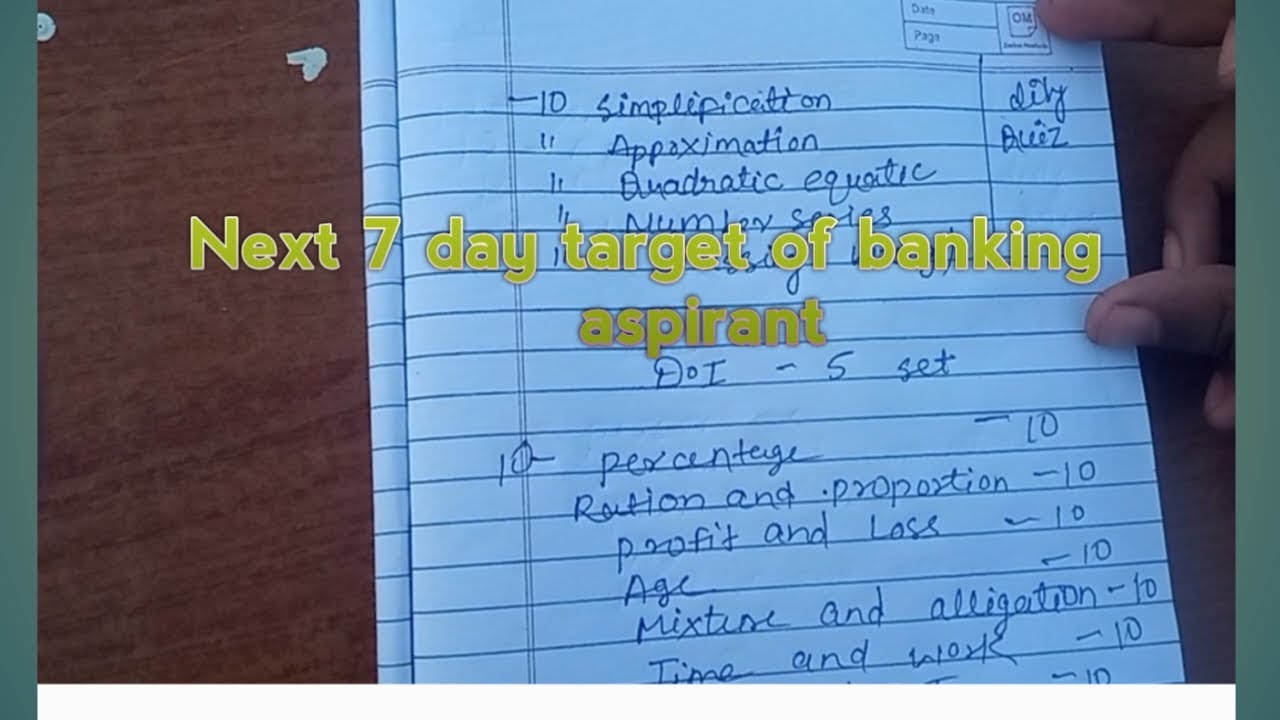 Date
Page
OM
-10 Simplipication dily
" Appoximation Quiz
" Quadratic equatic
" Number series
"
Next 7 day target of banking
aspirant
DOI - 5 set
10- percentage - 10
Ration and .proportion - 10
profit and Loss - 10
Age - 10
Mixture and alligation - 10
Time and work - 10
- 10